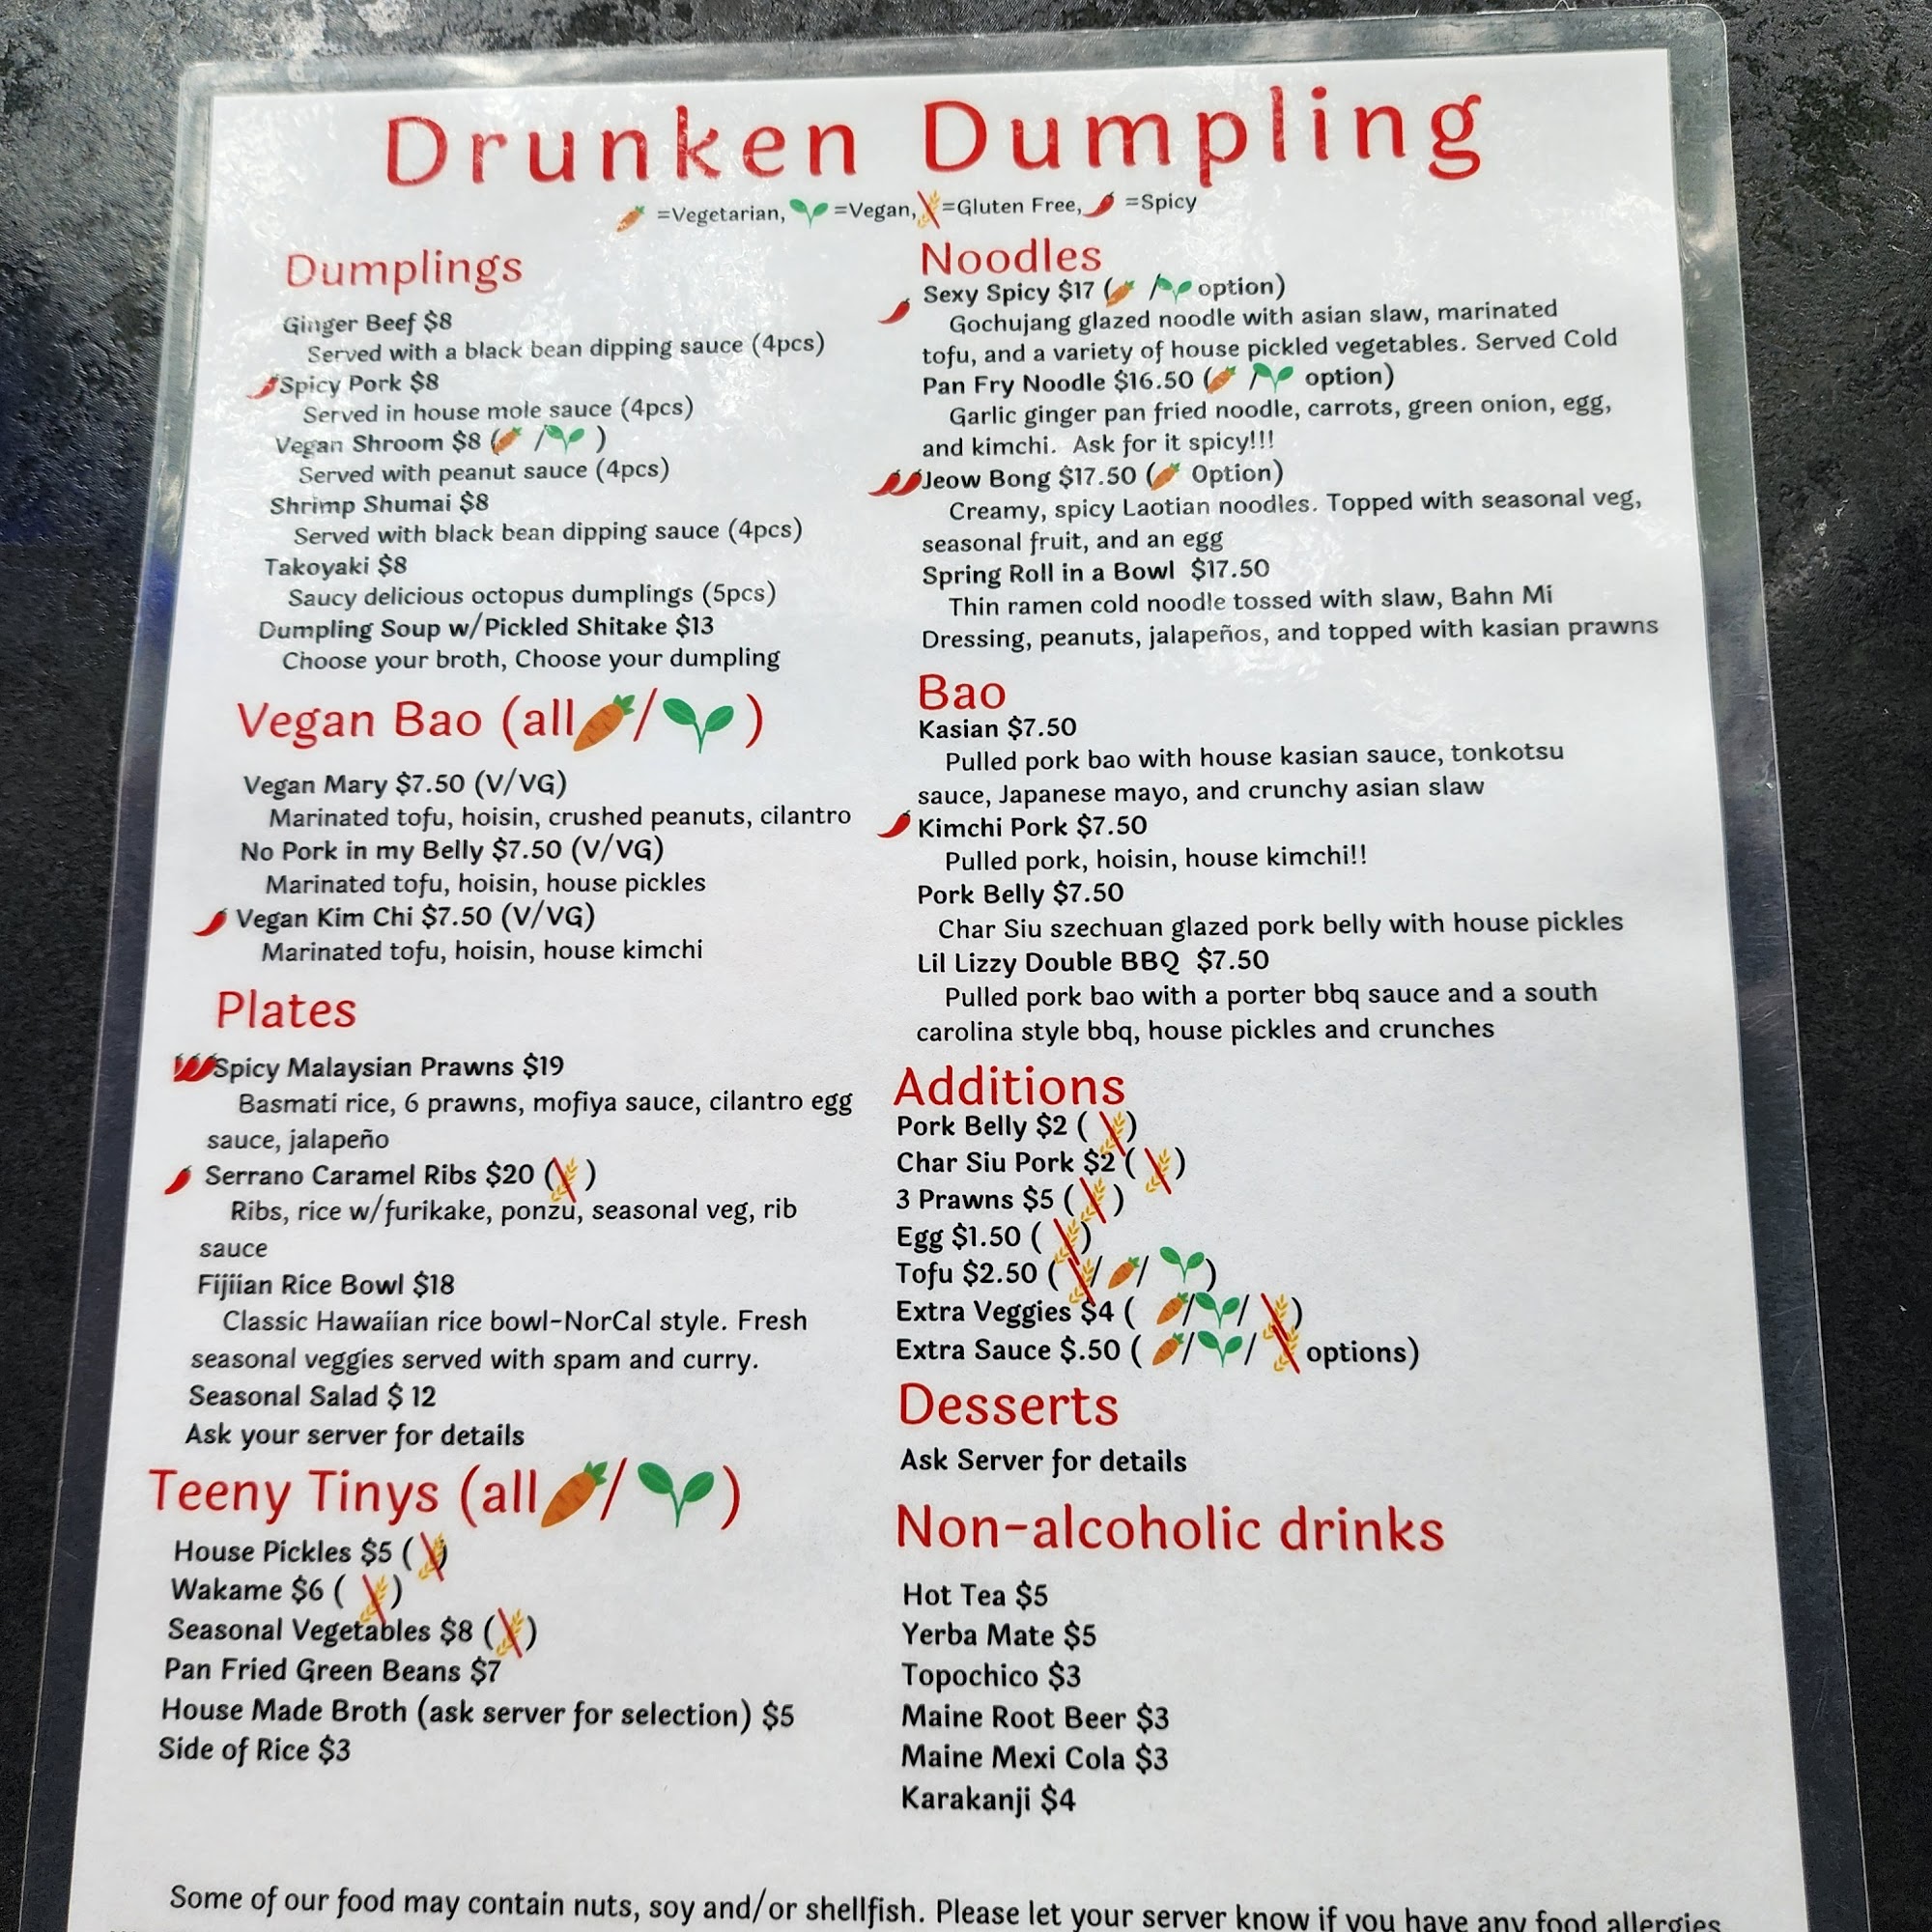 Drunken Dumpling
=Vegetarian, =Vegan, =Gluten Free, =Spicy
Dumplings
Ginger Beef $8
Served with a black bean dipping sauce (4pcs)
Spicy Pork $8
Served in house mole sauce (4pcs)
Vegan Shroom $8 ( / )
Served with peanut sauce (4pcs)
Shrimp Shumai $8
Served with black bean dipping sauce (4pcs)
Takoyaki $8
Saucy delicious octopus dumplings (5pcs)
Dumpling Soup w/Pickled Shitake $13
Choose your broth, Choose your dumpling
Vegan Bao (all / )
Vegan Mary $7.50 (V/VG)
Marinated tofu, hoisin, crushed peanuts, cilantro
No Pork in my Belly $7.50 (V/VG)
Marinated tofu, hoisin, house pickles
Vegan Kim Chi $7.50 (V/VG)
Marinated tofu, hoisin, house kimchi
Plates
Spicy Malaysian Prawns $19
Basmati rice, 6 prawns, mofiya sauce, cilantro egg
sauce, jalapeño
Serrano Caramel Ribs $20 ( )
Ribs, rice w/furikake, ponzu, seasonal veg, rib
sauce
Fijiian Rice Bowl $18
Classic Hawaiian rice bowl-NorCal style. Fresh
seasonal veggies served with spam and curry.
Seasonal Salad $ 12
Ask your server for details
Teeny Tinys (all / )
House Pickles $5 ( )
Wakame $6 ( )
Seasonal Vegetables $8 ( )
Pan Fried Green Beans $7
House Made Broth (ask server for selection) $5
Side of Rice $3
Noodles
Sexy Spicy $17 ( / option)
Gochujang glazed noodle with asian slaw, marinated
tofu, and a variety of house pickled vegetables. Served Cold
Pan Fry Noodle $16.50 ( / option)
Garlic ginger pan fried noodle, carrots, green onion, egg,
and kimchi. Ask for it spicy!!!
Jeow Bong $17.50 ( Option)
Creamy, spicy Laotian noodles. Topped with seasonal veg,
seasonal fruit, and an egg
Spring Roll in a Bowl $17.50
Thin ramen cold noodle tossed with slaw, Bahn Mi
Dressing, peanuts, jalapeños, and topped with kasian prawns
Bao
Kasian $7.50
Pulled pork bao with house kasian sauce, tonkotsu
sauce, Japanese mayo, and crunchy asian slaw
Kimchi Pork $7.50
Pulled pork, hoisin, house kimchi!!
Pork Belly $7.50
Char Siu szechuan glazed pork belly with house pickles
Lil Lizzy Double BBQ $7.50
Pulled pork bao with a porter bbq sauce and a south
carolina style bbq, house pickles and crunches
Additions
Pork Belly $2 ( )
Char Siu Pork $2 ( )
3 Prawns $5 ( )
Egg $1.50 ( )
Tofu $2.50 ( / / )
Extra Veggies $4 ( / / )
Extra Sauce $.50 ( / / options)
Desserts
Ask Server for details
Non-alcoholic drinks
Hot Tea $5
Yerba Mate $5
Topochico $3
Maine Root Beer $3
Maine Mexi Cola $3
Karakanji $4
Some of our food may contain nuts, soy and/or shellfish. Please let your server know if you have any food allergies